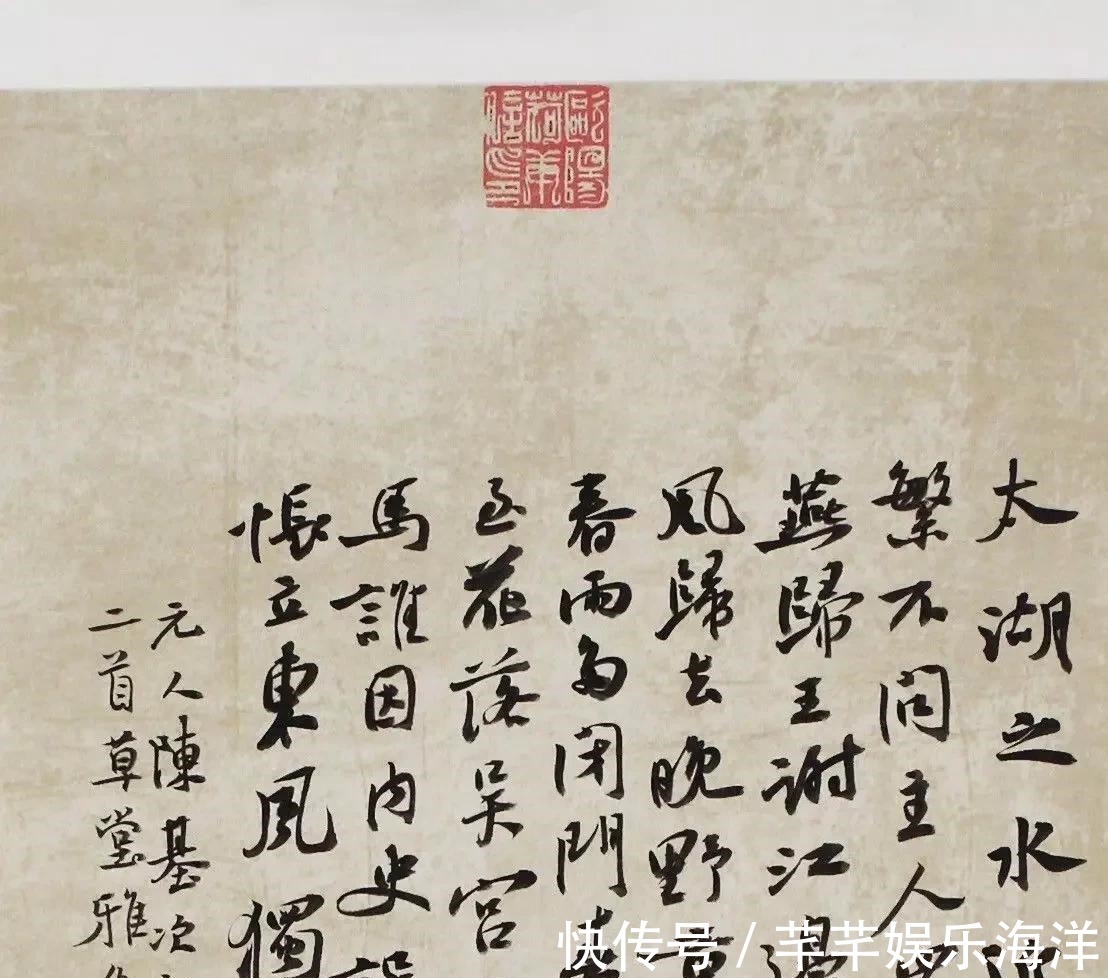 太湖之水
繁不問主人
燕歸王謝江
風歸去晚野
春雨多闭門
至花落吴宫
馬誰因内史
悵立東風獨
元人陳基次
二首草堂雅
歐陽荷庚賸印
快传号 / 芊芊娱乐海洋